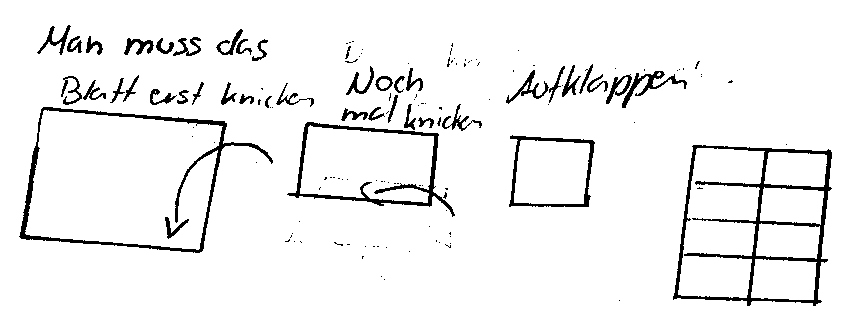 Man muss das
Blatt erst knicken
Noch
mal knicken
Aufklappen